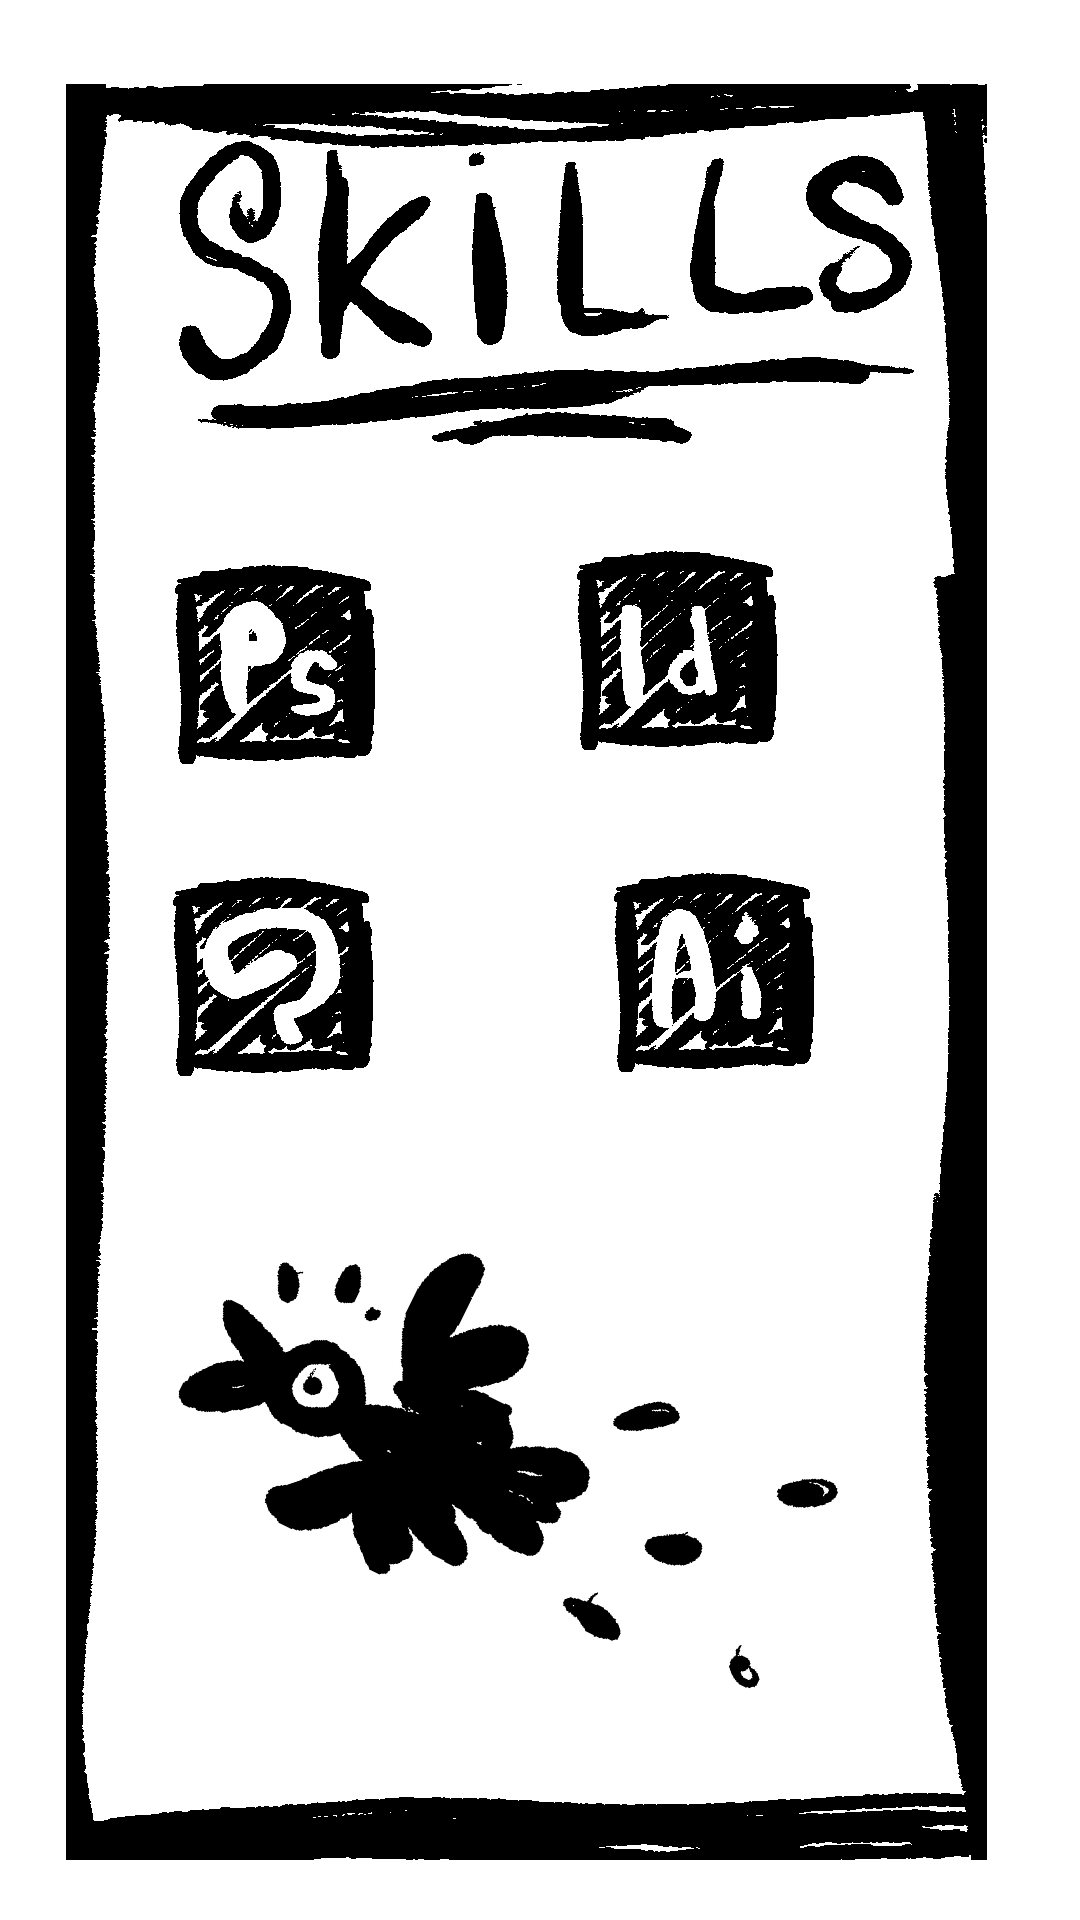 SKiLLS
Ps
Id
Ai